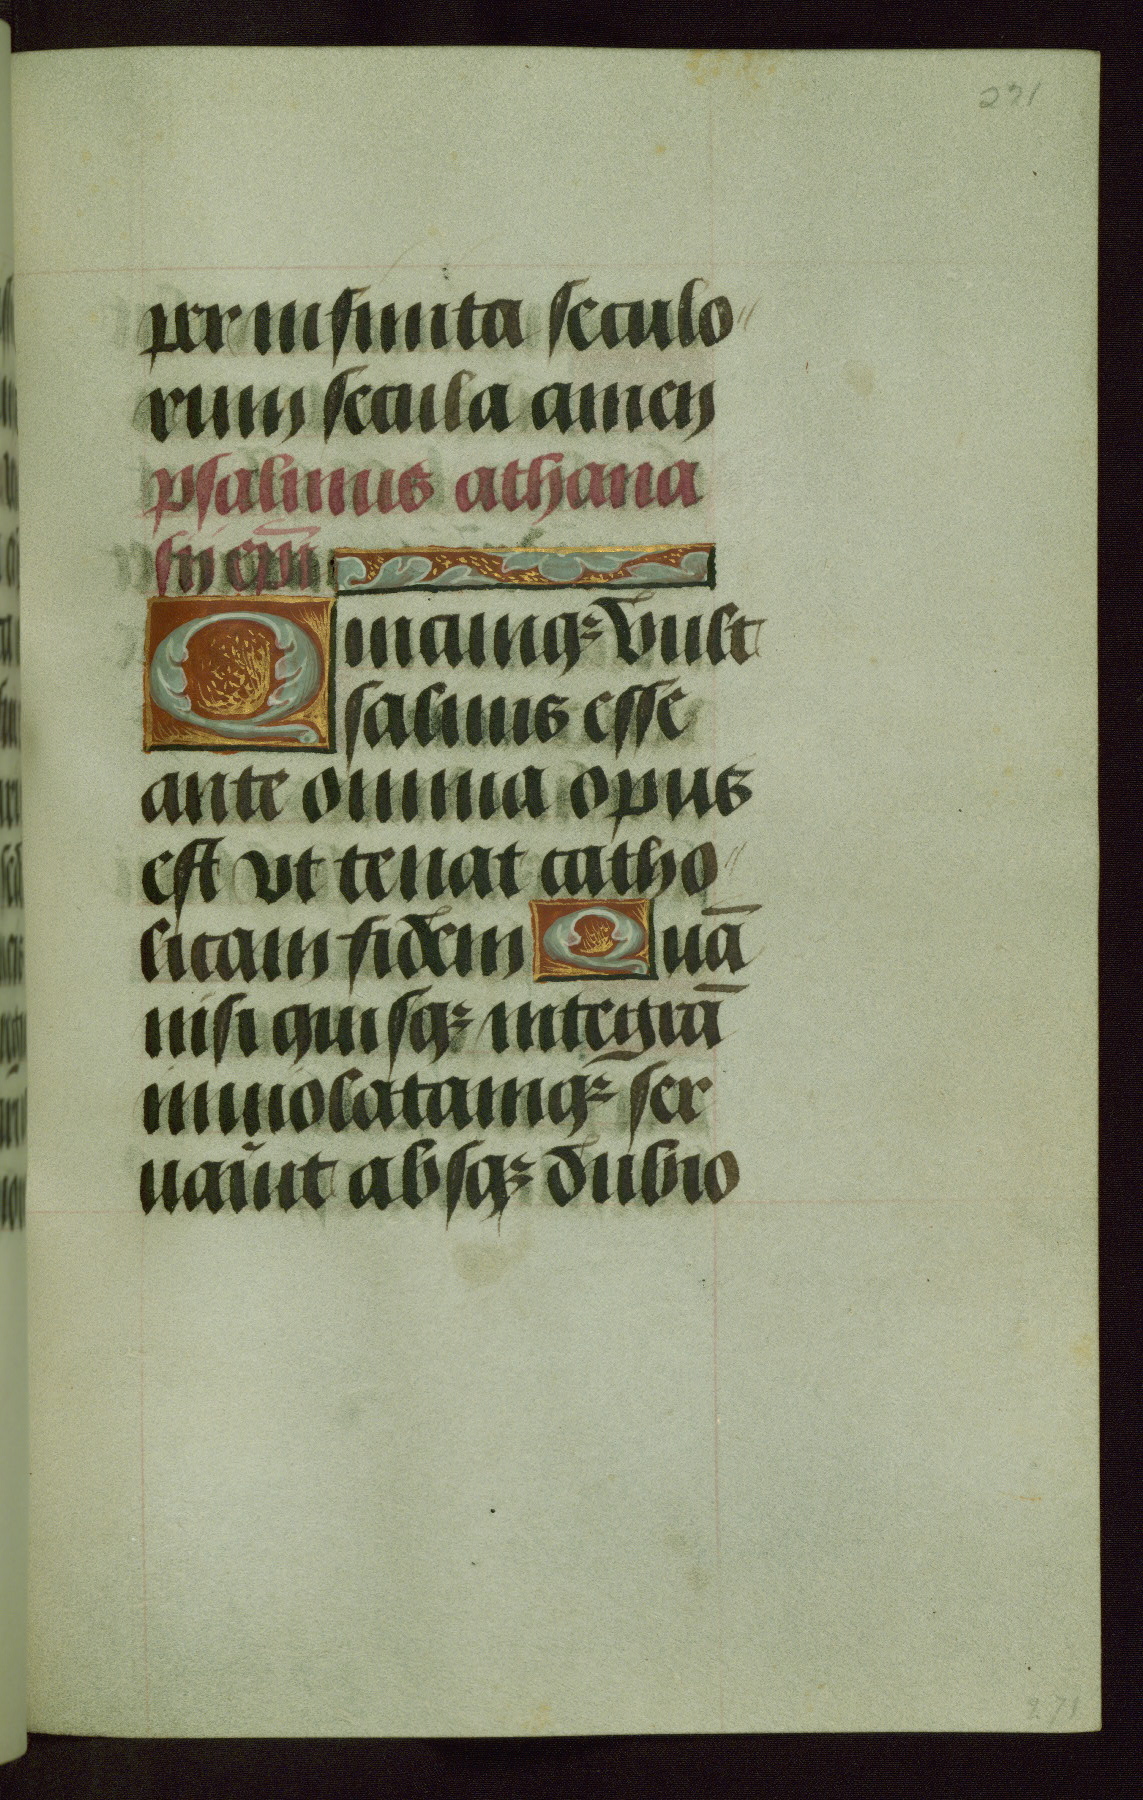 271
per infinita seculo〃
rum secula amen
psalmus athana
sii ep̄i
Quicunqꝫ vult
saluus esse
ante omnia opus
est vt teneat catho〃
licam fidem Quā
nisi quisqꝫ integrā
inuiolatamqꝫ ser
uau̅it absqꝫ dubio
271